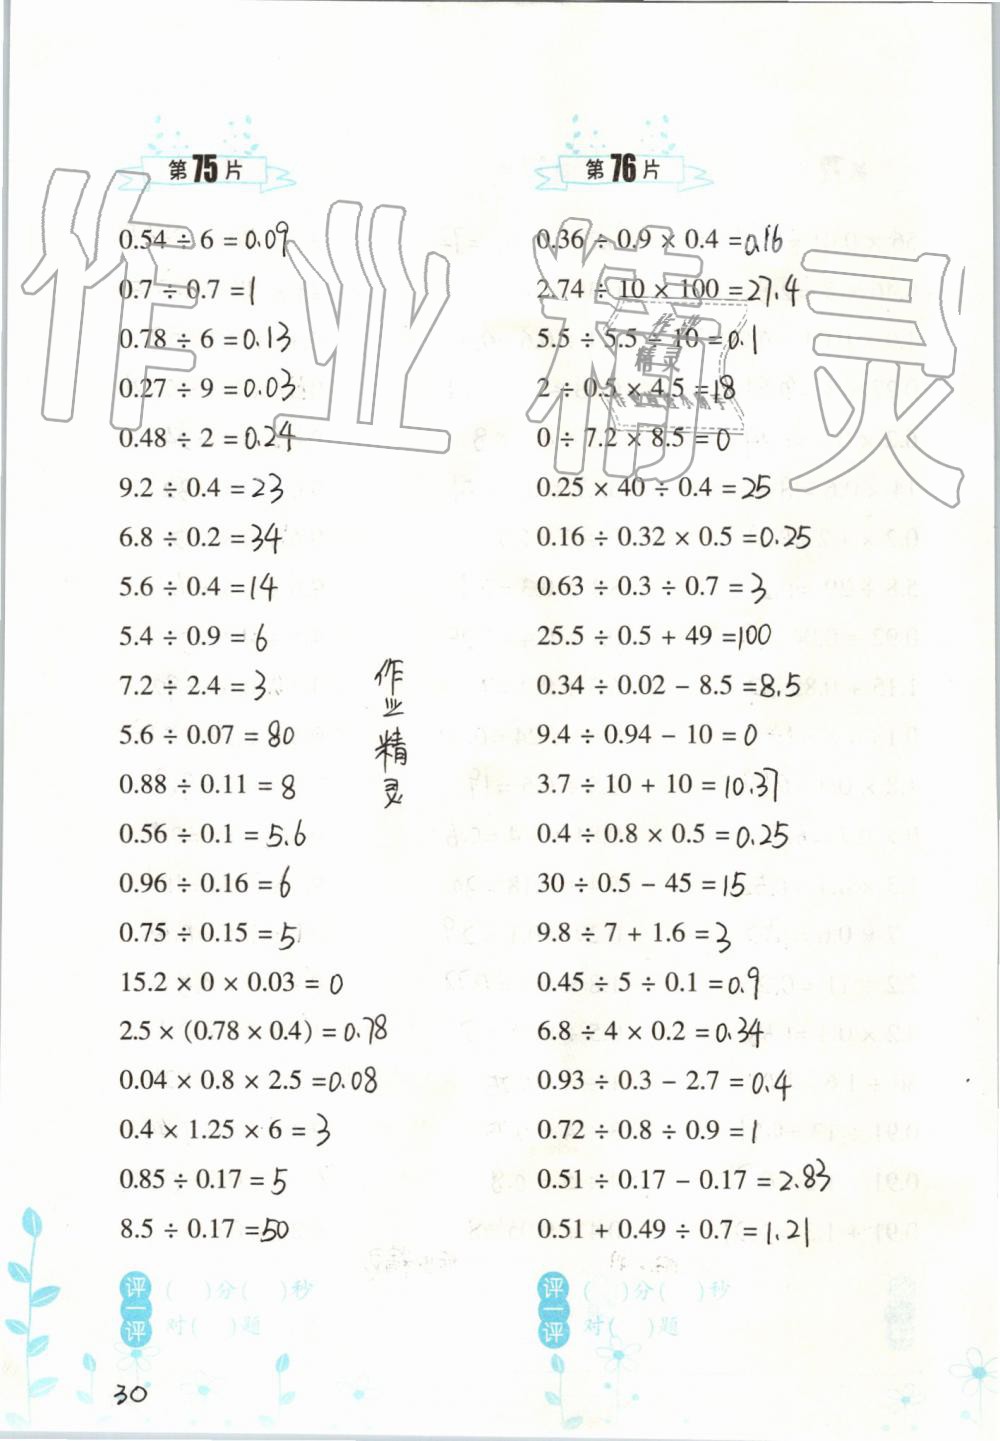 第75片
0.54 ÷ 6 = 0.09
0.7 ÷ 0.7 = 1
0.78 ÷ 6 = 0.13
0.27 ÷ 9 = 0.03
0.48 ÷ 2 = 0.24
9.2 ÷ 0.4 = 23
6.8 ÷ 0.2 = 34
5.6 ÷ 0.4 = 14
5.4 ÷ 0.9 = 6
7.2 ÷ 2.4 = 3
5.6 ÷ 0.07 = 80
0.88 ÷ 0.11 = 8
0.56 ÷ 0.1 = 5.6
0.96 ÷ 0.16 = 6
0.75 ÷ 0.15 = 5
15.2 × 0 × 0.03 = 0
2.5 × (0.78 × 0.4) = 0.78
0.04 × 0.8 × 2.5 = 0.08
0.4 × 1.25 × 6 = 3
0.85 ÷ 0.17 = 5
8.5 ÷ 0.17 = 50
评一评
( )分( )秒
对( )题
作业精灵
第76片
0.36 ÷ 0.9 × 0.4 = 0.16
2.74 ÷ 10 × 100 = 27.4
5.5 ÷ 5.5 ÷ 10 = 0.1
2 ÷ 0.5 × 4.5 = 18
0 ÷ 7.2 × 8.5 = 0
0.25 × 40 ÷ 0.4 = 25
0.16 ÷ 0.32 × 0.5 = 0.25
0.63 ÷ 0.3 ÷ 0.7 = 3
25.5 ÷ 0.5 + 49 = 100
0.34 ÷ 0.02 − 8.5 = 8.5
9.4 ÷ 0.94 − 10 = 0
3.7 ÷ 10 + 10 = 10.37
0.4 ÷ 0.8 × 0.5 = 0.25
30 ÷ 0.5 − 45 = 15
9.8 ÷ 7 + 1.6 = 3
0.45 ÷ 5 ÷ 0.1 = 0.9
6.8 ÷ 4 × 0.2 = 0.34
0.93 ÷ 0.3 − 2.7 = 0.4
0.72 ÷ 0.8 ÷ 0.9 = 1
0.51 ÷ 0.17 − 0.17 = 2.83
0.51 + 0.49 ÷ 0.7 = 1.21
评一评
( )分( )秒
对( )题
30
作业精灵
作业
精灵